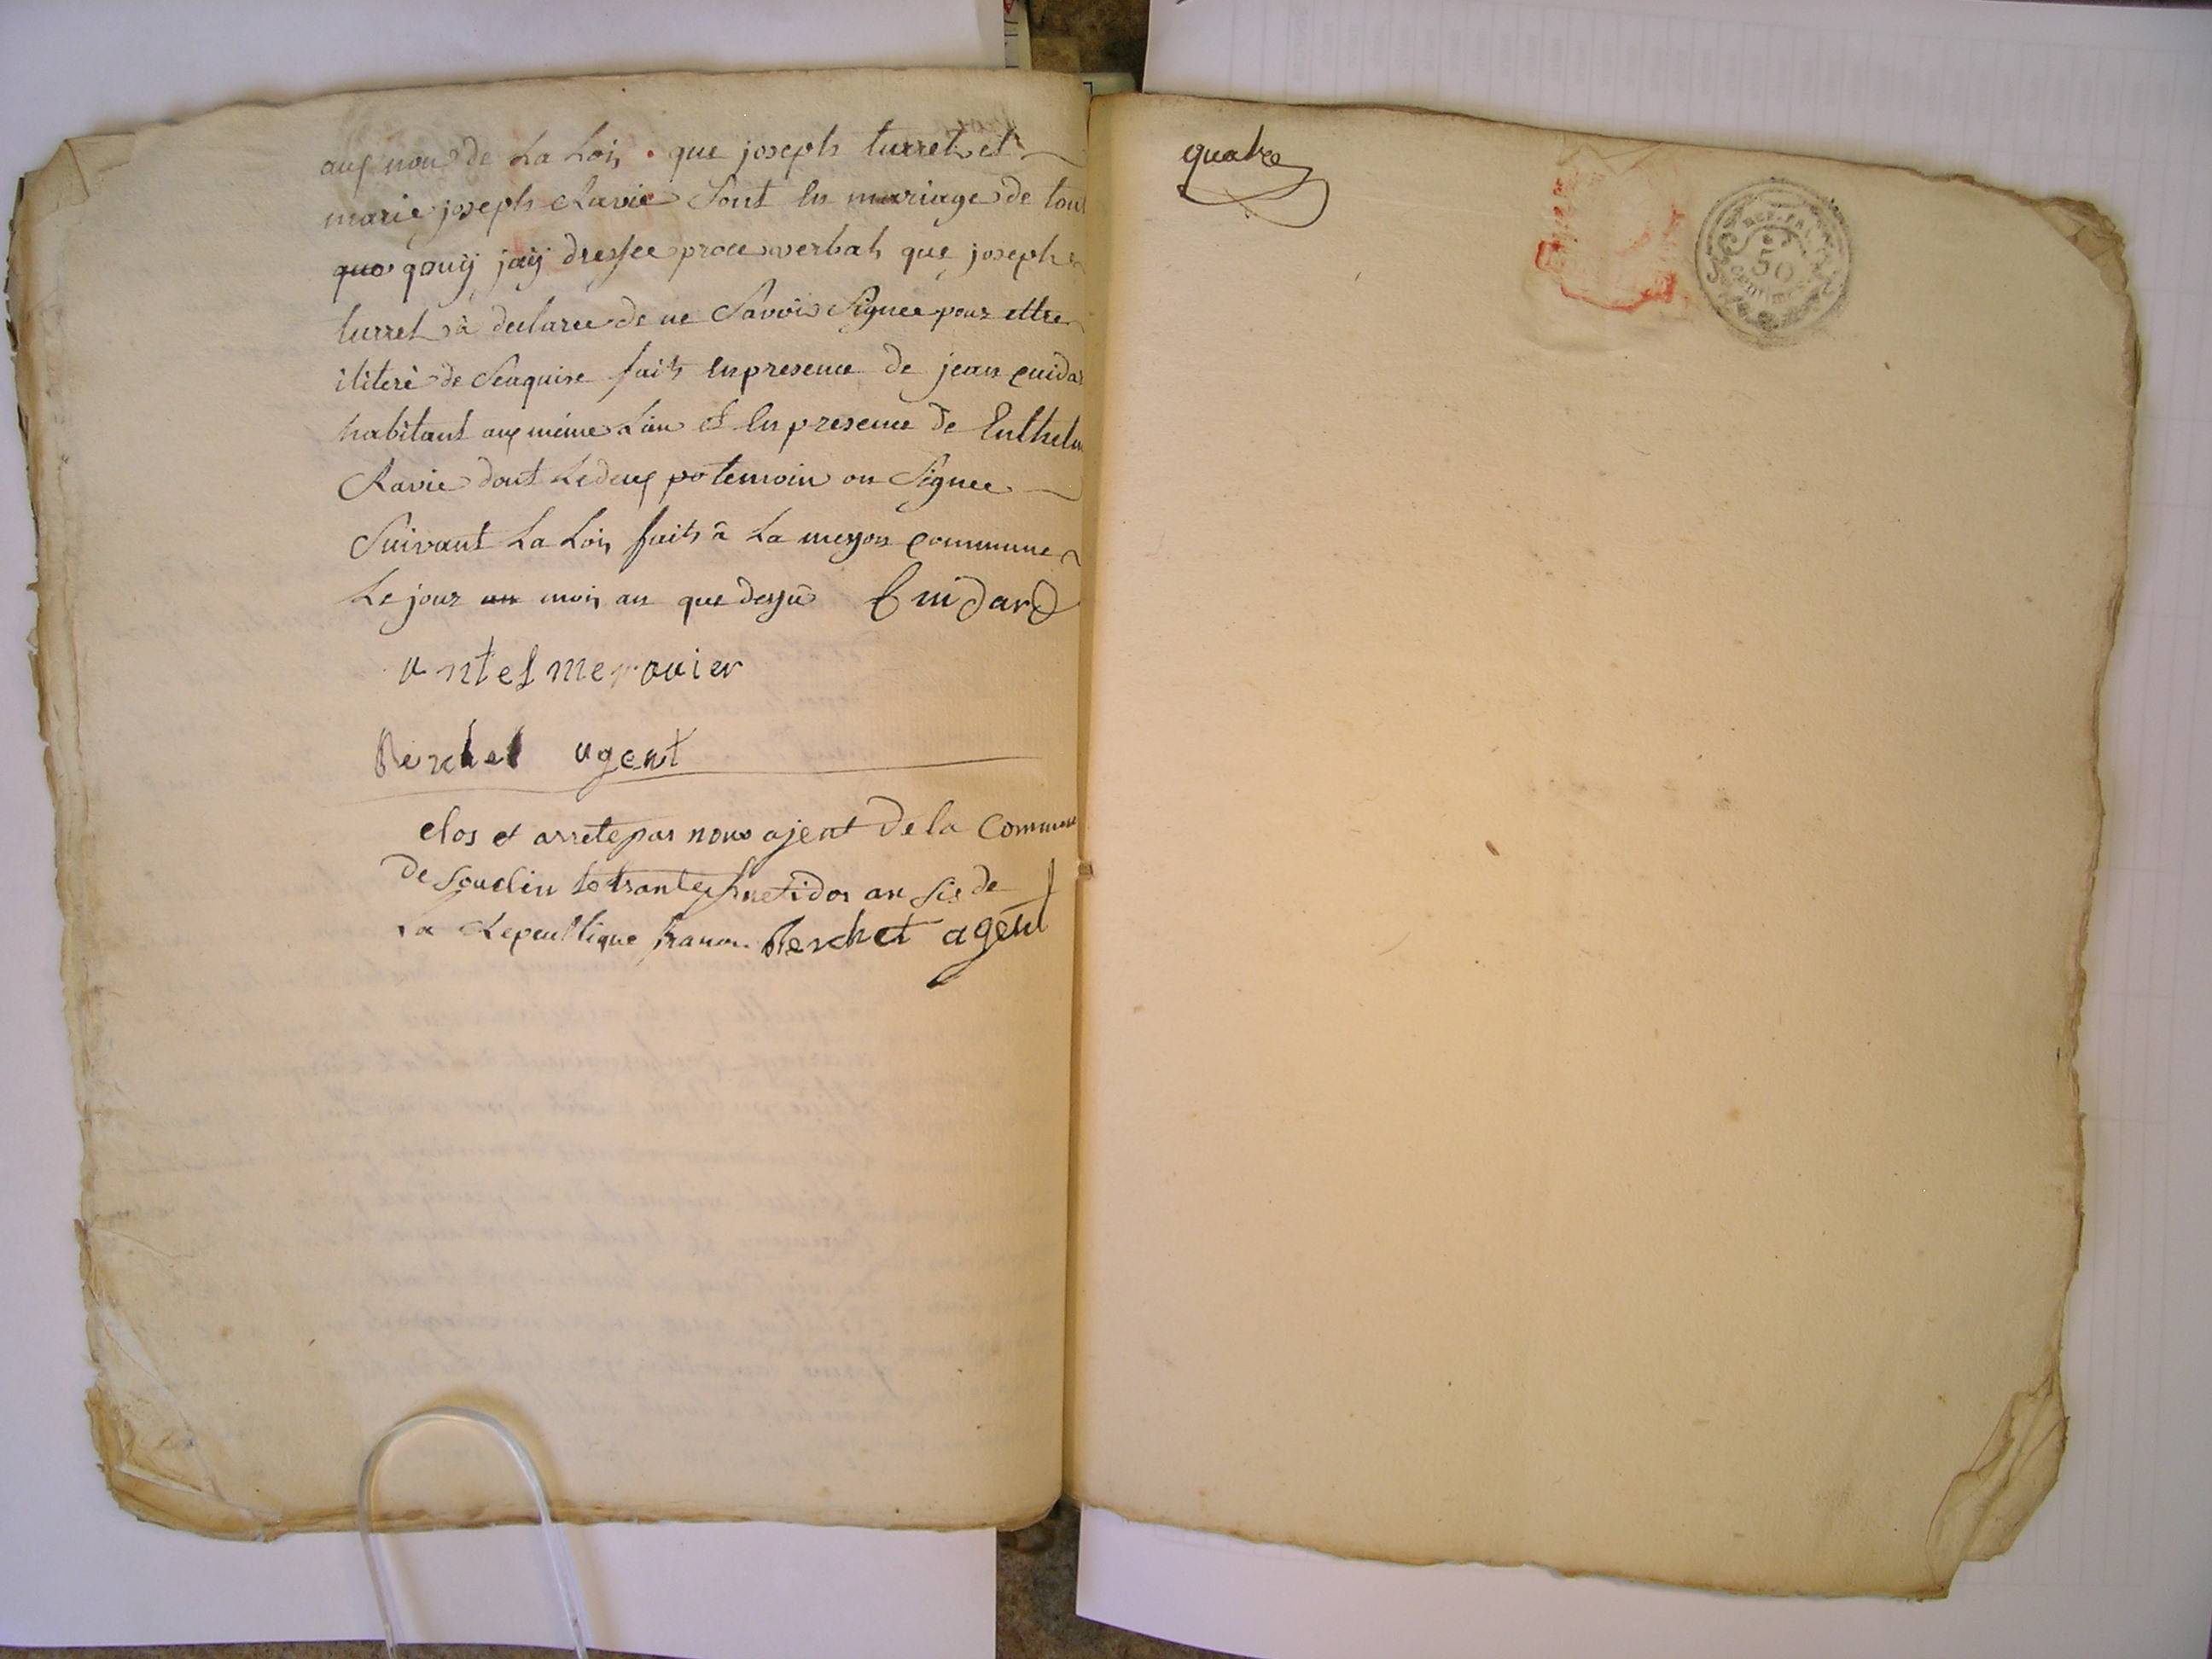 aux nom de La Loix que joseph turret et
marie joseph Ravie Sont En mariage de tout
quo qouÿ jaÿ dressee proce verbal que joseph
turret à declaree de ne Savoir Signee pour ettre
iliteré de Senquise fait En presence de jean cuidar
habitant aux méme Lieu et En presence de Enthelm
Ravie dont Le deux temoin on Signee
Suivant La Loix fait à La meyson commune
Le jour mois an que dessû Cuidard
antelme ravier
Berchet agent
clos et arrete par nous ajent de la Commune
de Souclin le trante fructidor an sis de
La Republique franc. Berchet agent
quatre
REP. FRA.
50
centimes